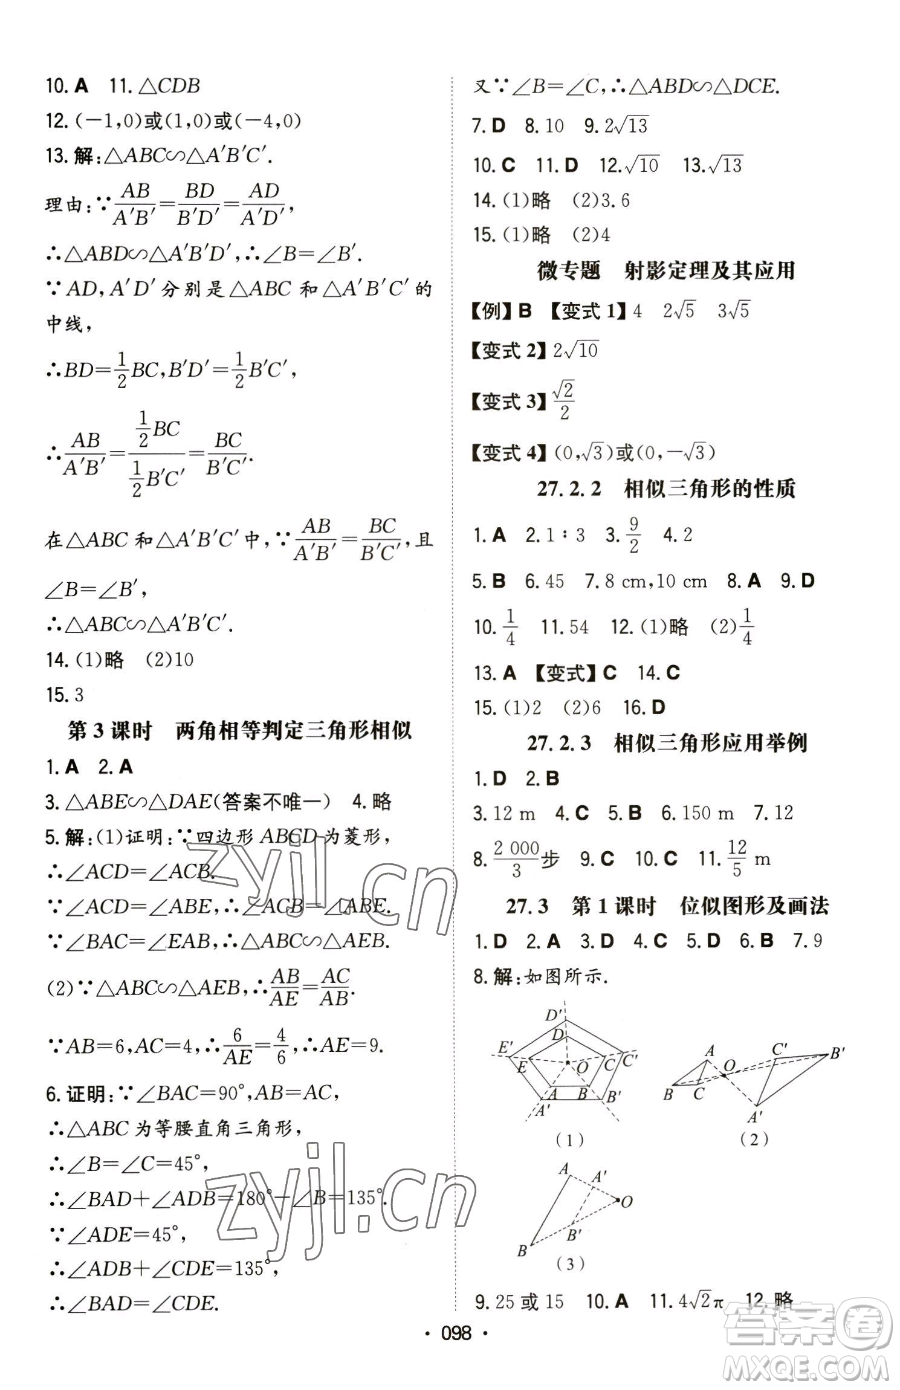 10. A　11. △CDB
12. (－1,0)或(1,0)或(－4,0)
13. 解:△ABC∽△A′B′C′.
理由:∵AB/A′B′=BD/B′D′=AD/A′D′,
∴△ABD∽△A′B′D′,∴∠B=∠B′.
∵AD,A′D′分别是△ABC和△A′B′C′的
中线,
∴BD=1/2BC,B′D′=1/2B′C′,
∴AB/A′B′=(1/2BC)/(1/2B′C′)=BC/B′C′.
在△ABC和△A′B′C′中,∵AB/A′B′=BC/B′C′,且
∠B=∠B′,
∴△ABC∽△A′B′C′.
14. (1)略　(2)10
15. 3
第3课时　两角相等判定三角形相似
1. A　2. A
3. △ABE∽△DAE(答案不唯一)　4. 略
5. 解:(1)证明:∵四边形ABCD为菱形,
∴∠ACD=∠ACB.
∵∠ACD=∠ABE,∴∠ACB=∠ABE.
∵∠BAC=∠EAB,∴△ABC∽△AEB.
(2)∵△ABC∽△AEB,∴AB/AE=AC/AB.
∵AB=6,AC=4,∴6/AE=4/6,∴AE=9.
6. 证明:∵∠BAC=90°,AB=AC,
∴△ABC为等腰直角三角形,
∴∠B=∠C=45°,
∴∠BAD+∠ADB=180°－∠B=135°.
∵∠ADE=45°,
∴∠ADB+∠CDE=135°,
∴∠BAD=∠CDE.
又∵∠B=∠C,∴△ABD∽△DCE.
7. D　8. 10　9. 2√13
10. C　11. D　12. √10　13. √13
14. (1)略　(2)3.6
15. (1)略　(2)4
微专题　射影定理及其应用
【例】B　【变式1】4　2√5　3√5
【变式2】2√10
【变式3】√2/2
【变式4】(0,√3)或(0,－√3)
27.2.2　相似三角形的性质
1. A　2. 1∶3　3. 9/2　4. 2
5. B　6. 45　7. 8 cm,10 cm　8. A　9. D
10. 1/4　11. 54　12. (1)略　(2)1/4
13. A　【变式】C　14. C
15. (1)2　(2)6　16. D
27.2.3　相似三角形应用举例
1. D　2. B
3. 12 m　4. C　5. B　6. 150 m　7. 12
8. 2 000/3步　9. C　10. C　11. 12/5 m
27.3　第1课时　位似图形及画法
1. D　2. A　3. D　4. C　5. D　6. B　7. 9
8. 解:如图所示.
D′
D
E′ E O C C′
A B
A′ B′
(1)
A O C′ B′
B C A′
(2)
A A′ O
B′
B
(3)
9. 25或15　10. A　11. 4√2π　12. 略
· 098 ·
zyjl.cn
zyjl.cn
答案圈
MXQE.COM